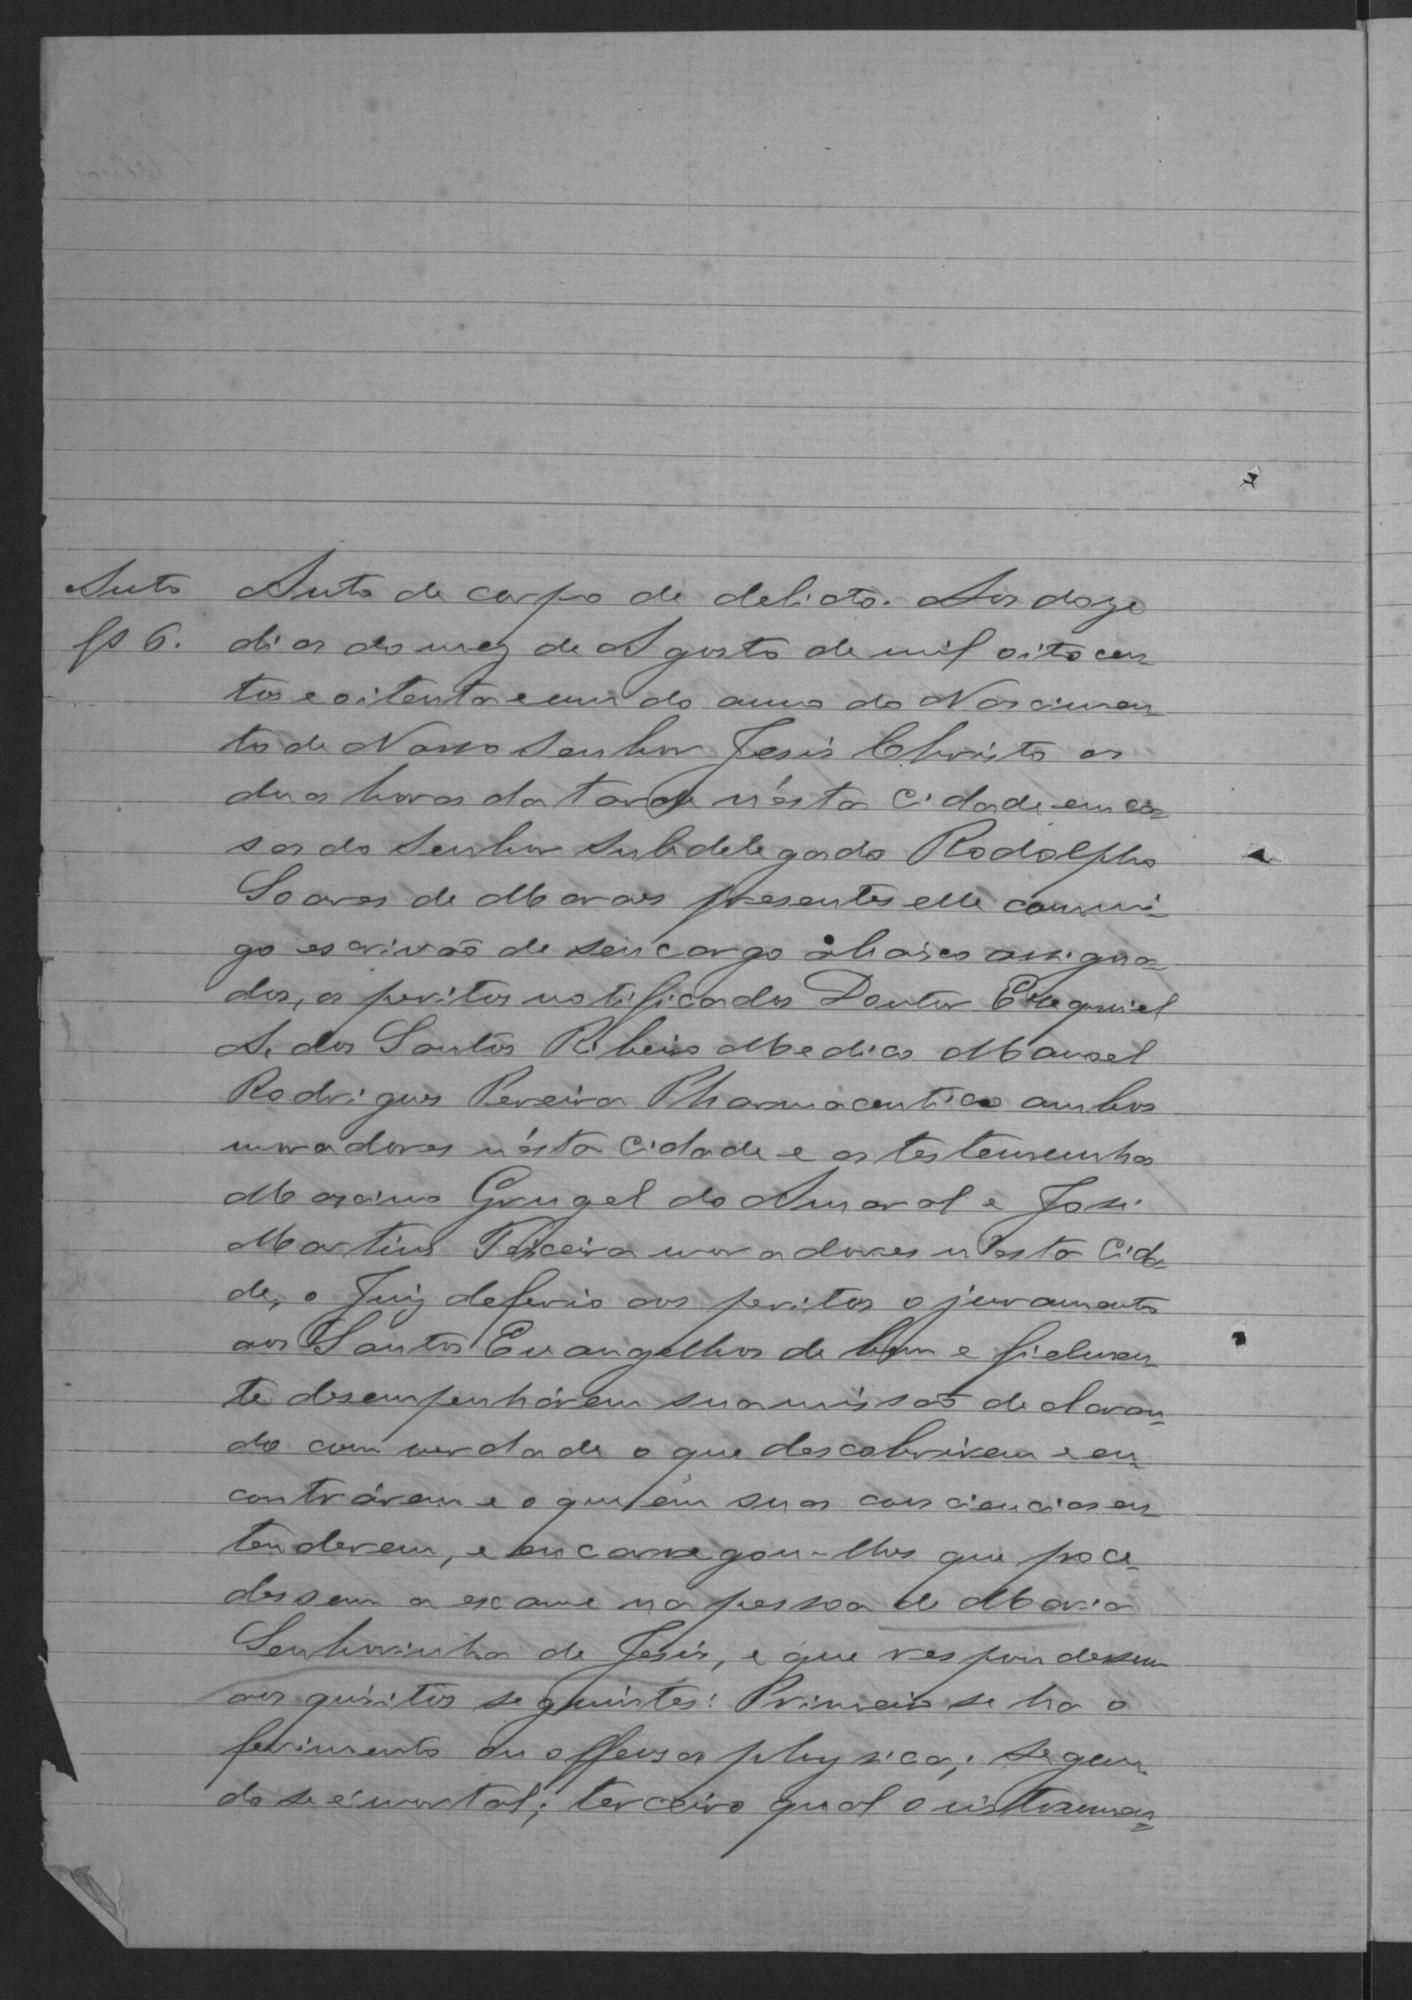 Auto
fs 6.
Auto de corpo de delicto. Aos doze
dias do mez de Agosto de mil oito cen
tos e oitenta e um do anno do Nascimen
to de Nosso Senhor Jesús Christo as
duas horas da tarde n'ésta Cidade em ca
sa do Senhor Subdelegado Rodolpho
Soares de Moraes presentes elle commi-
go escrivaõ de seu cargo abaixo assigna
dos, os peritos notificados Doutor Exequiel
A. dos Santos Ribeiro Medico Manoel
Rodrigues Pereira Pharmaceutico ambos
moradores n'ésta Cidade e as testemunhas
Maximo Gurgel do Amaral e José
Martins Teixeira moradores n'ésta Cida
de, o Juiz deferio aos peritos o juramento
aos Santos Evangelhos de bem e fielmen
te desempenhárem sua missaõ declaran-
do com verdade o que descobrirem e en-
contrárem e o que em suas consciencias en
tenderem, e encarregou-lhes que proce-
dessem a exame na pessoa de Maria
Senhorinha de Jesús, e que respondessem
aos quisitos seguintes: Primeiro se ha o
ferimento ou offensa physica; segun-
do se é mortal; terceiro qual o instrumen-